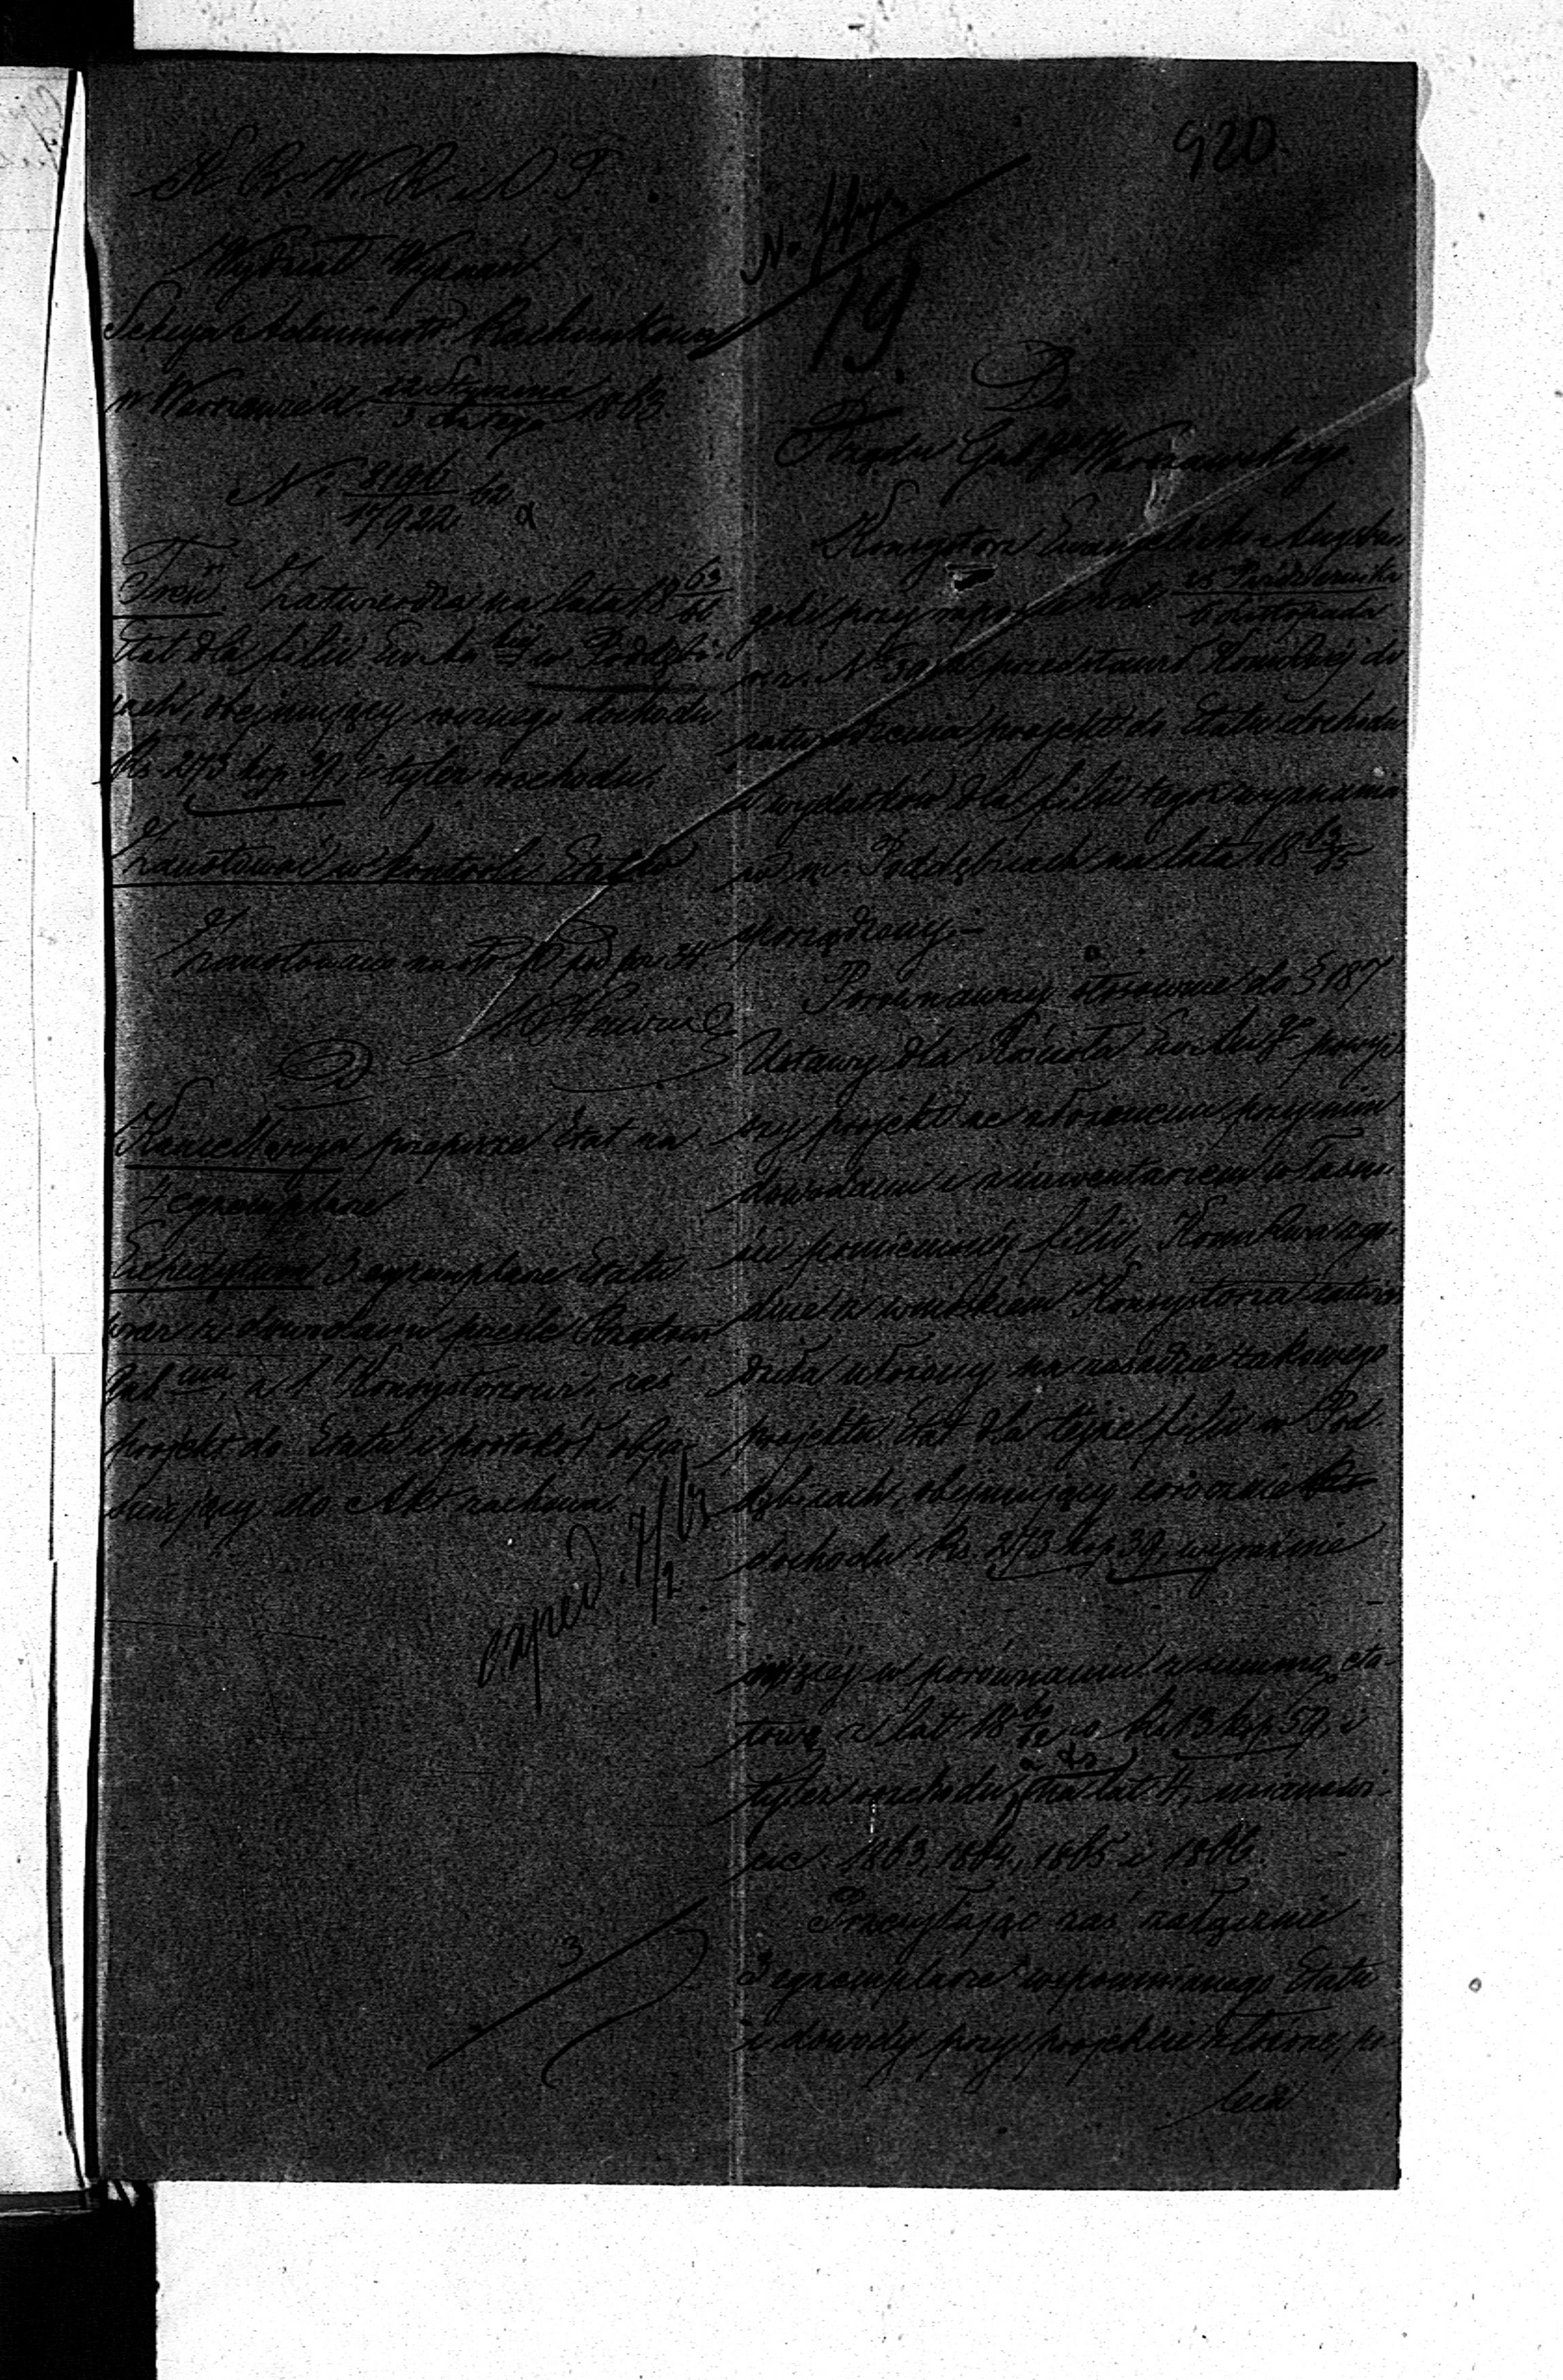 920.
K. R. W. R. i O. P.
Wydział Wyznań
Sekcya Administr. Rachunkowa
w Warszawie d. 22 Stycznia / 3 Lutego 1863
N. 8196/17922 62
Treść. Zatwierdza na lata 18 63/66
Etat dla filii Ew. Au. w Poddębi-
cach, obejmujący rocznego dochodu
Rs. 273 kop. 39, i tyleż rozchodu.
Zanotować w kontroli Etatów
Zanotowano na str. 10 pod
Kancellarya przepisze Etat na
4 egzemplarze
Expedytura 3 egzemplarze Etatu
wraz z dowodami prześle Rządowi
Gub., a 1 Konsystorzowi, zaś
projekt do Etatu i protokół obja-
śniający do Akt zachowa.
exped. 7/2 63
3
No.
19.
Do
Rządu Gub. Warszawskiego.
Konsystorz Ewangelicko-Augsbur-
gski przy rapporcie z d. 25 Października / 6 Listopada
r. z. N. przedstawił Kommissyi do
zatwierdzenia projekt do Etatu dochodu
i wydatków dla filii tegoż wyznania
w m. Poddębicach na lata 18
sporządzony.
Porównawszy stosownie do § 187
Ustawy dla Kościoła Ew. Au. powyż-
szy projekt ze złożonemi przy nim
dowodami i z inwentarzem
pomienionéj filii, Kom. Rząd. zgo-
dnie z wnioskiem Konsystorza zatwier-
dziła ułożony na zasadzie takowego
projektu Etat dla tejże filii w Pod-
dębicach, obejmujący corocznie
dochodu Rs. 273 kop. 39, wyraźnie
w porównaniu z summą eta-
tową z lat 18 60/62 o Rs. 13 kop. 59, i
tyleż rozchodu, na lat 4, mianowi-
cie: 1863, 1864, 1865 i 1866.
Przesyłając zaś załącznie
3 egzemplarze wspomnianego Etatu
i dowody przy projekcie złożone, po-
leca